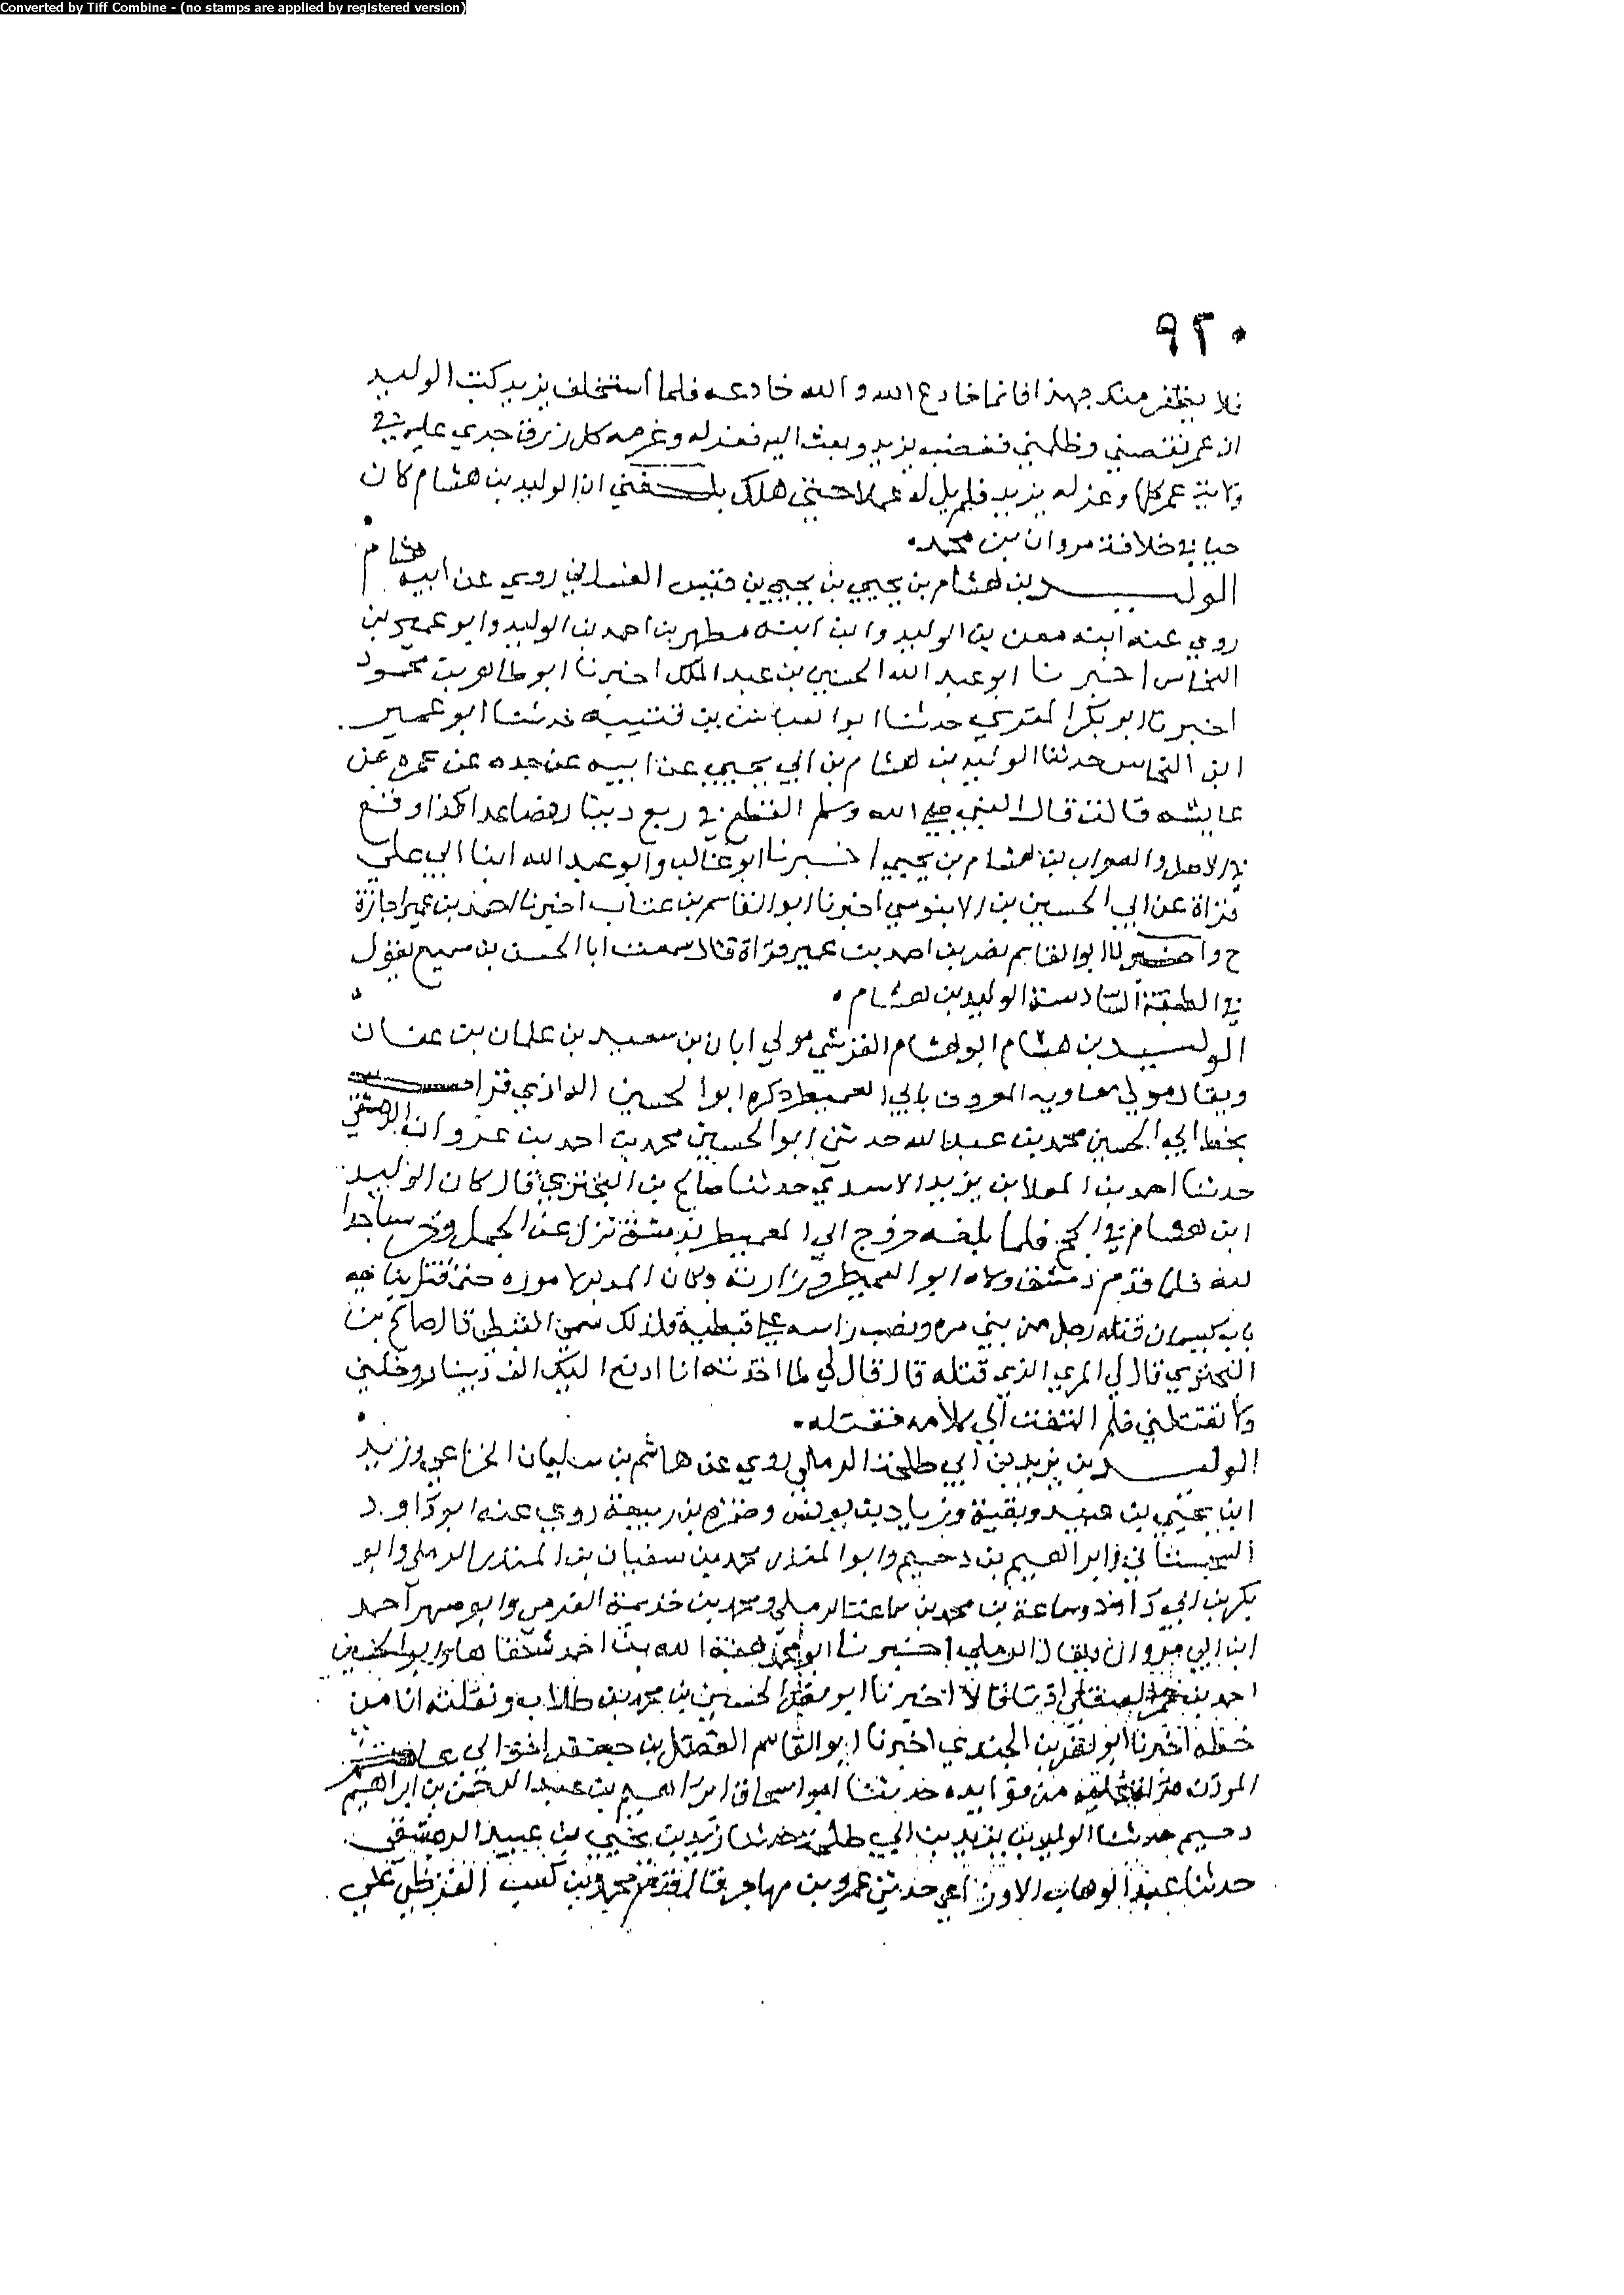 Converted by Tiff Combine - (no stamps are applied by registered version)
٩٢٠
فلا يظفر منك بهذا فانما خادع الله والله خادعه فلما استخلف يزيد كتب الوليد
ان عمر نقصني وظلمني فغضب يزيد وبعث اليه فعزله وغرمه كل رزق جري عليه في
ولاية عمر كلها وعزله يزيد فلم يل له عملا حتى هلك بلغني ان الوليد بن هشام كان
حيا في خلافة مروان بن محمد
الوليد بن هشام بن يحيي بن يحيي بن قيس الغساني روي عن ابيه هشام
روي عنه ابنه معن بن الوليد وابن ابنه مطهر بن احمد بن الوليد وابو عمير بن
النحاس اخبرنا ابو عبد الله الحسين بن عبد الملك اخبرنا ابو طاهر بن محمود
اخبرنا ابو بكر المقري حدثنا ابو العباس بن قتيبه حدثنا ابو عمير
ابن النحاس حدثنا الوليد بن هشام بن ابي يحيي عن ابيه عن جده عن عمره عن
عايشه قالت قال النبي صلى الله وسلم القطع في ربع دينار فصاعدا كذا وقع
في الاصل والصواب بن هشام بن يحيي اخبرنا ابو غالب وابو عبد الله ابنا ابي علي
قراة عن ابي الحسين بن الابنوسي اخبرنا ابو القاسم بن عتاب اخبرنا احمد بن عمير اجازة
ح واخبرنا ابو القاسم نصر بن احمد بن عمير قراة قال سمعت ابا الحسن بن سميع يقول
في الطبقة السادسة الوليد بن هشام
الوليد بن هشام ابو هشام القرشي مولي ابان بن سعيد بن علمان بن عفان
ويقال مولي معاويه المعروف بابي العميطر ذكره ابو الحسين الرازي قرات
بخط ابي الحسين محمد بن عبد الله حدثني ابو الحسين محمد بن احمد بن غزوان الدمشقي
حدثنا احمد بن المعلا بن يزيد الاسدي حدثنا صالح بن البختري قال كان الوليد
ابن هشام في الحج فلما بلغه خروج ابي العميطر بدمشق نزل عن الجمل وخر ساجدا
لله فلما قدم دمشق ولاه ابو العميطر وزارته وكان المدبر لاموره حتى قتل بناحيه
باب كيسان قتله رجل من بني مره ونصب راسه على قبطية فلذلك سمي القبطي قال صالح بن
البختري قال لي المري الذي قتله قال قال لي لما اخذته انا ادفع اليك الف دينار وخلني
ولا تقتلني فلم التفت الي كلامه فقتله
الوليد بن يزيد بن ابي طلحة الرملي روي عن هاشم بن سليمان الخزاعي وزيد
ابن يحيي بن عبيد وبقية وزياد بن يونس وضمره بن ربيعة روي عنه ابو داود
السجستاني وابراهيم بن دحيم وابو المنذر محمد بن سفيان بن المنذر الرملي وابو
بكر بن ابي داود وسماعة بن محمد بن سماعة الرملي ومحمد بن خذيمة القدمي وابو مسهر احمد
ابن ابي مروان الرملي اخبرنا ابو محمد هبة الله بن احمد شفاها وابو الحسين
احمد بن الصقلي قالا اخبرنا ابو الحسين بن محمد بن طلاب ونقلته انا من
خطه اخبرنا ابو نصر بن الجندي اخبرنا ابو القاسم الفضل بن جعفر
الموذن حدثنا ابو اسحاق ابراهيم بن عبد الرحمن بن ابراهيم
دحيم حدثنا الوليد بن يزيد بن ابي طلحة حدثنا زيد بن يحيي بن عبيد الدمشقي
حدثنا عبد الوهاب الاوزاعي حدثني عمرو بن مهاجر قال قدم محمد بن كعب القرظي علي